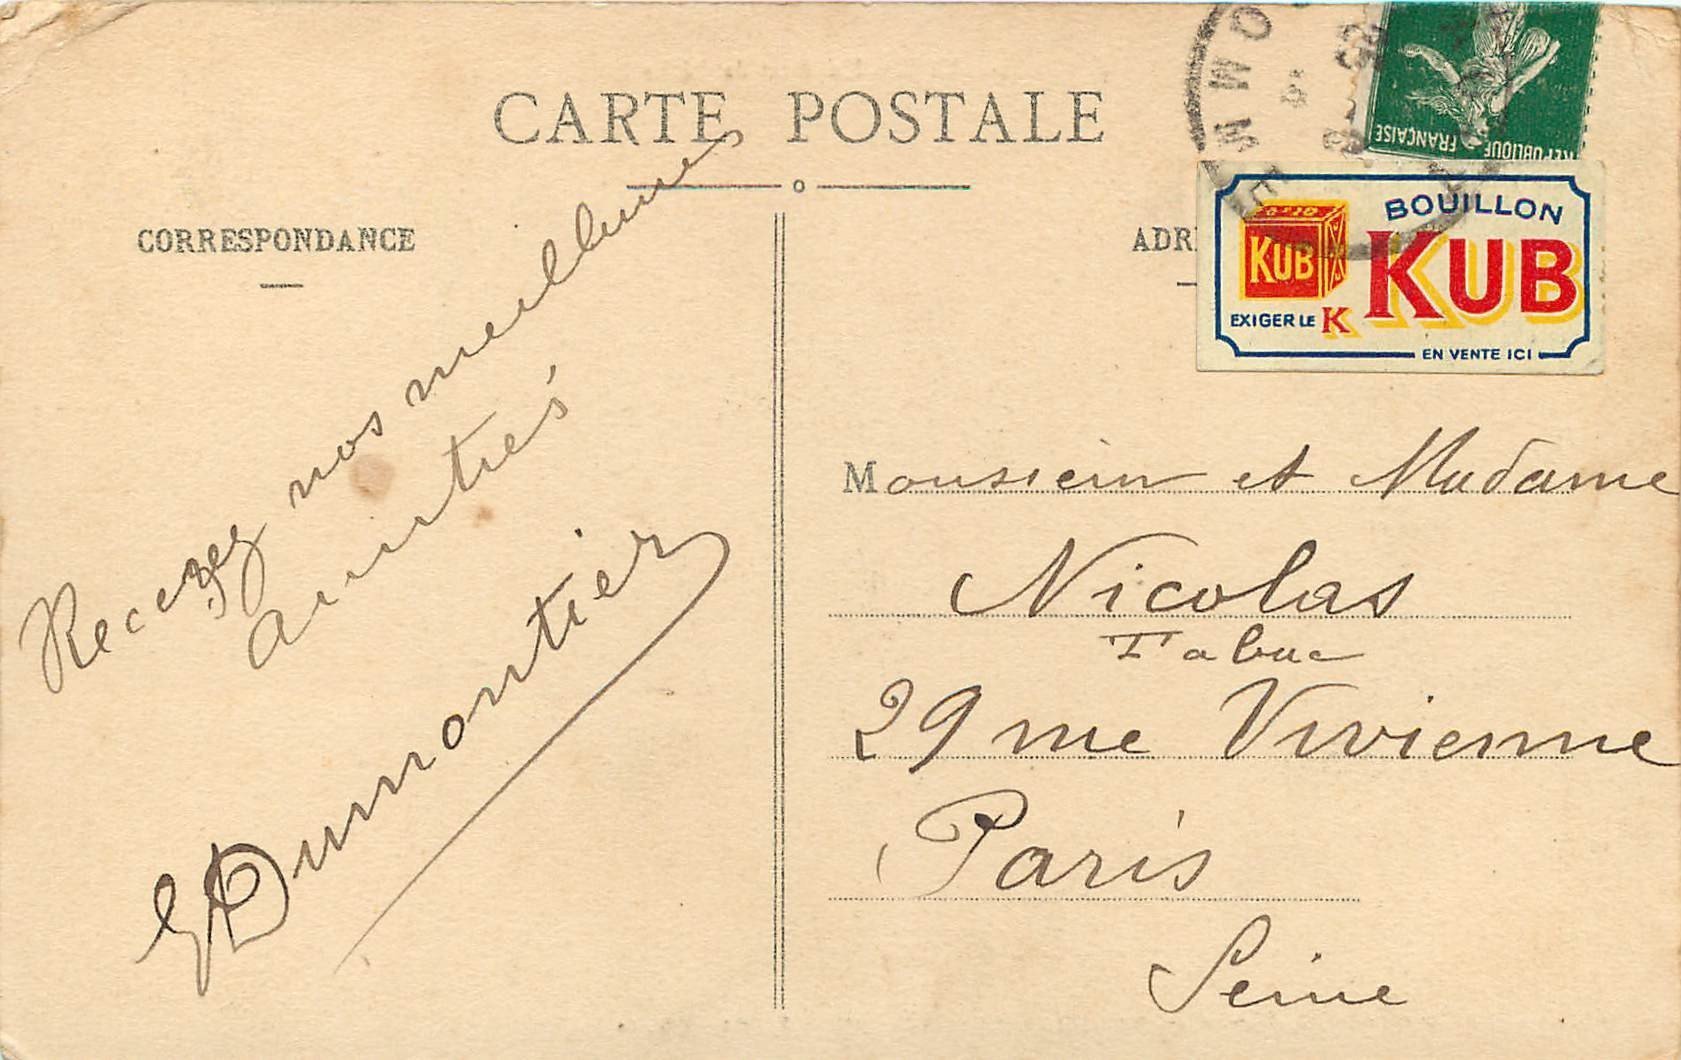 CARTE POSTALE
CORRESPONDANCE
Recevez nos meilleures
amitiés
G Dumontier
RÉPUBLIQUE
FRANÇAISE
ADR
BOUILLON
KUB
KUB
EXIGER LE K
EN VENTE ICI
Monsieur et Madame
Nicolas
Tabac
29 rue Vivienne
Paris
Seine